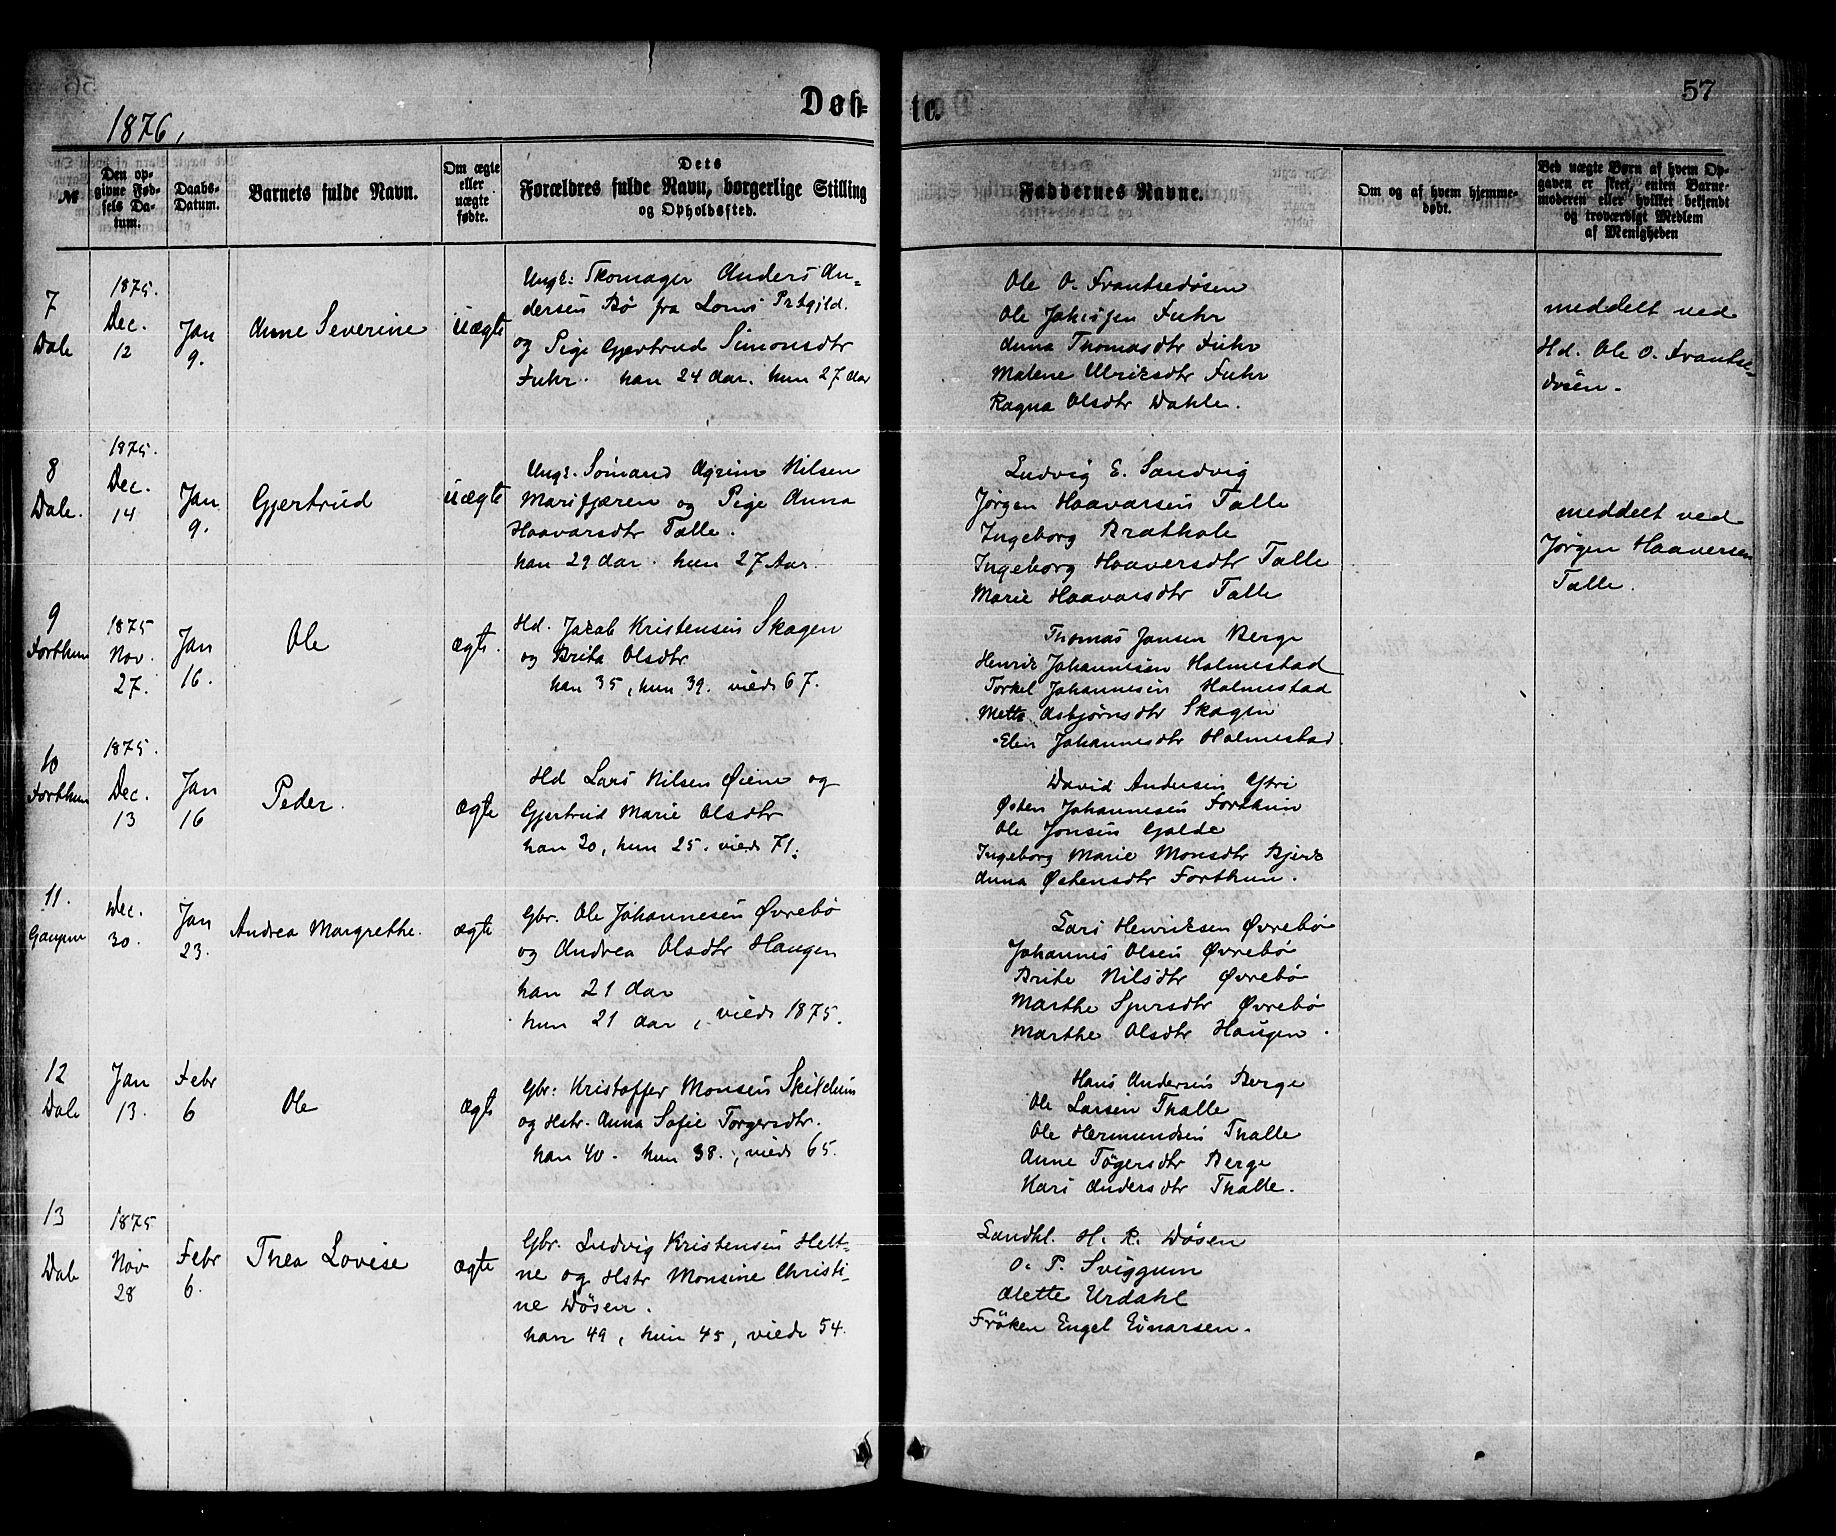 57
Døb-
te.
1876,
№
Den op-
givne Fød-
sels Da-
tum.
Daabs-
Datum.
Barnets fulde Navn.
Om ægte
eller
uægte
fødte.
Dets
Forældres fulde Navn, borgerlige Stilling
og Opholdssted.
Faddernes Navne.
Om og af hvem hjemme-
døbt.
Ved uægte Børn af hvem Op-
gaven er skeet, enten Barne-
moderen eller hvilket bekjendt
og troværdigt Medlem
af Menigheden
7
Dale
1875.
Dec.
12
Jan
9.
Anne Severine
uægte
Ungk: Skomager Anders An-
dersen Bø fra Loms Prstgjld.
og Pige Gjertrud Simonsdtr
Fuhr. han 24 Aar. hun 27 Aar
Ole O. Frantsedøsen
Ole Fuhr
Anna Thomasdtr Fuhr
Malene Ulriksdtr Fuhr
Ragna Olsdtr Dahle.
meddelt ved
Hd. Ole O. Frantse-
døsen.
8
Dale.
1875.
Dec.
14
Jan
9.
Gjertrud
uægte
Ungk. Sømand Agrim Nilsen
Marifjæren og Pige Anna
Haavarsdtr Talle.
han 29 Aar. hun 27 Aar.
Ludvig E. Sandvig
Jørgen Haavarsen Talle
Ingeborg
Ingeborg Haaversdtr Talle
Marie Haavarsdtr Talle
meddelt ved
Jørgen Haaversen
Talle.
9
Forthun
1875
Nov.
27.
Jan
16.
Ole
ægte.
Hd. Jacob Kristensen Skagen
og Brita Olsdtr
han 35, hun 39. viede 67.
Thomas Jansen Berge
Henrik Johannesen Holmestad
Torkel Johannesen Holmestad
Mette Asbjørnsdtr Skagen
Elin Johannesdtr Holmestad.
10
Forthun
1875.
Dec.
13
Jan
16
Peder.
ægte
Hd Lars Nilsen Øiene og
Gjertrud Marie Olsdtr
han 30, hun 25. viede 71.
David Andersen Ytri
Østen Johannesen Forthun
Ole Jonsen Galde
Ingeborg Marie Monsdtr Bjerk
Anna Østensdtr Forthun.
11.
Gaupne
Dec.
30.
Jan
23.
Andrea Margrethe.
ægte
Gbr. Ole Johannesen Øvrebø
og Andrea Olsdtr Haugen
han 21 Aar
hun 21 Aar, viede 1875.
Lars Henriksen Øvrebø
Johannes Olsen Øvrebø
Brite Nilsdtr Øvrebø
Marthe Sjursdtr Øvrebø
Marthe Olsdtr Haugen.
12
Dale
Jan
13.
Febr
6
Ole
ægte
Gbr: Kristoffer Monsen
og Hstr. Anna Sofie Torgersdtr.
han 40. hun 38., viede 65.
Hans Andersen Berge
Ole Larsen Thalle
Ole Hermundsen Thalle
Anne Tøgersdtr Berge
Kari Andersdtr Thalle.
13
Dale
1875
Nov
28
Febr
6.
Thea Lovise
ægte
Gbr. Ludvig Kristensen Hett-
ne og Hstr Monsine Christi-
ne Døsen.
han 49, hun 45, viede 54.
Landhl. H. R. Døsen
O. P. Sviggum
Alette Urdahl
Frøken Engel Einarsen.